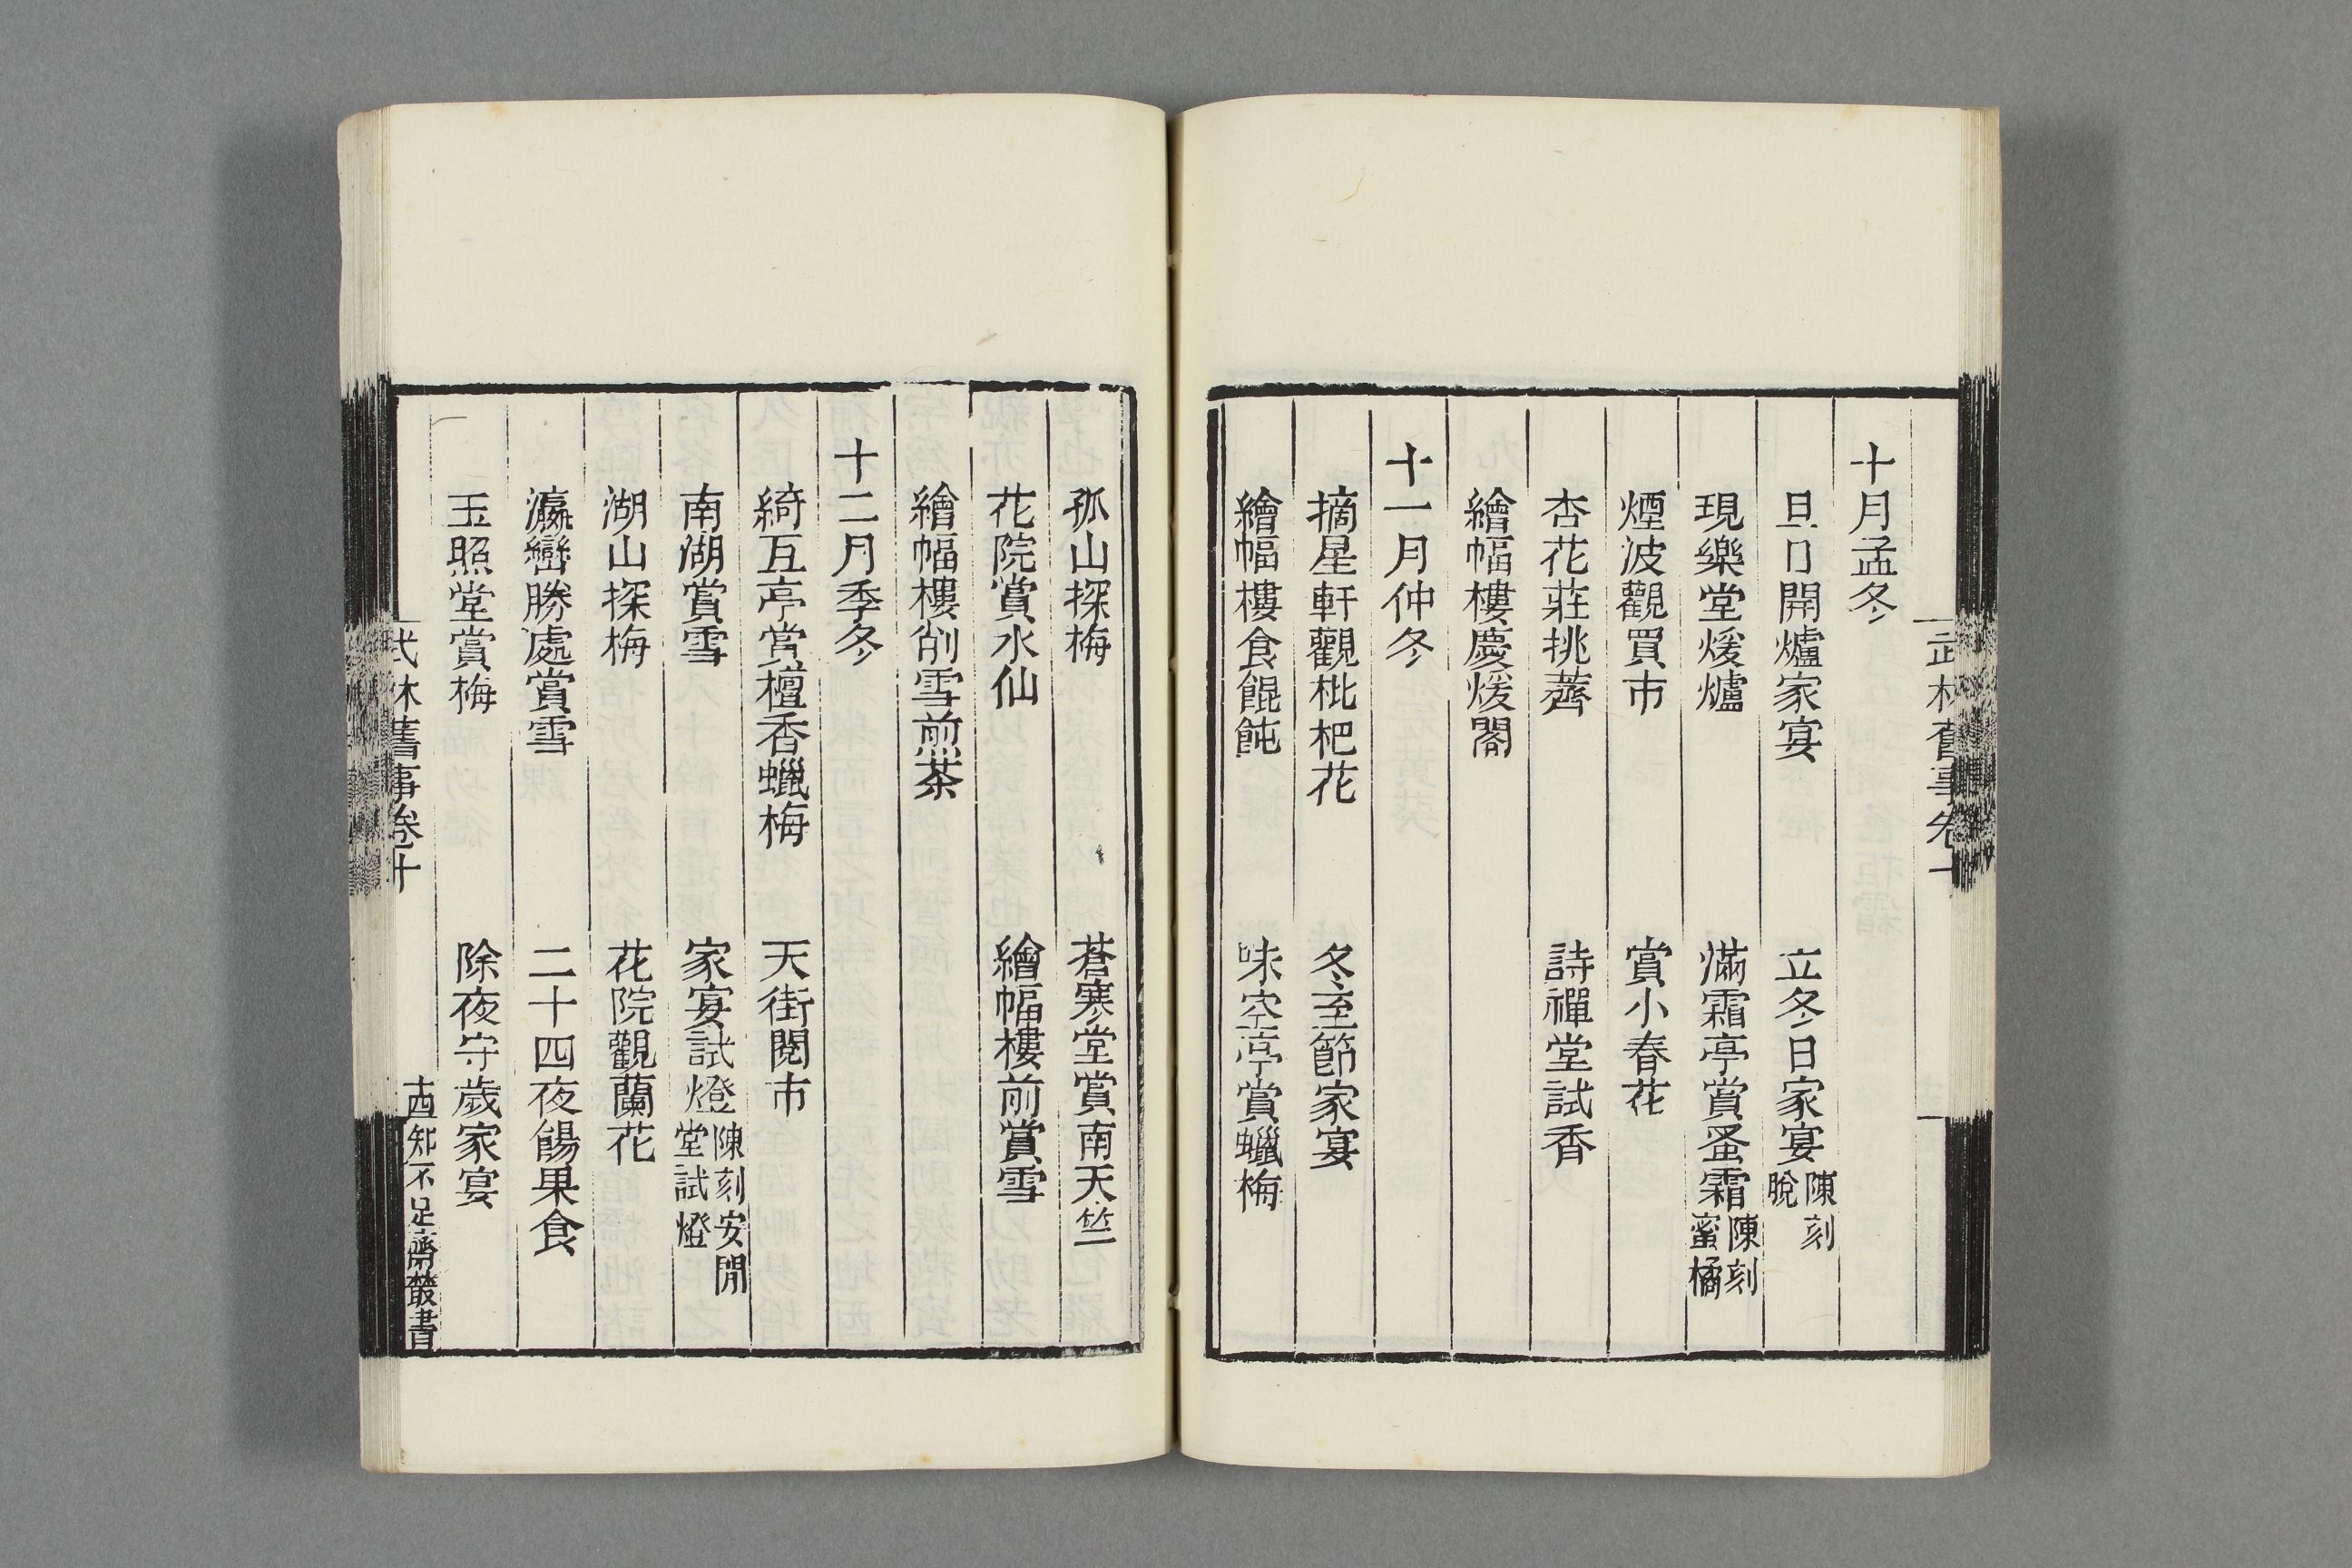 武林舊事卷十
十月孟冬
旦日開爐家宴　立冬日家宴陳刻脫
現樂堂煖爐　滿霜亭賞蚤霜陳刻蜜橘
煙波觀買市　賞小春花
杏花莊挑薺　詩禪堂試香
繪幅樓慶煖閣
十一月仲冬
摘星軒觀枇杷花　冬至節家宴
繪幅樓食餛飩　味空亭賞蠟梅
孤山探梅　蒼寒堂賞南天竺
花院賞水仙　繪幅樓前賞雪
繪幅樓削雪煎茶
十二月季冬
綺互亭賞檀香蠟梅　天街閱市
南湖賞雪　家宴試燈陳刻安閒堂試燈
湖山探梅　花院觀蘭花
瀛巒勝處賞雪　二十四夜餳果食
玉照堂賞梅　除夜守歲家宴
武林舊事卷十　十四　知不足齋叢書